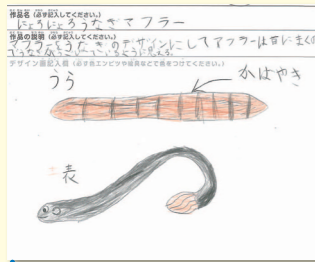 作品名(必ず記入してください。)
にょろにょろうなぎマフラー
作品の説明(必ず記入してください。)
マフラーをうなぎのデザインにしてマフラーは首にまくので
うなぎが
デザイン画記入欄(必ず色エンピツや絵具などで色をつけてください。)
うら
かばやき
表